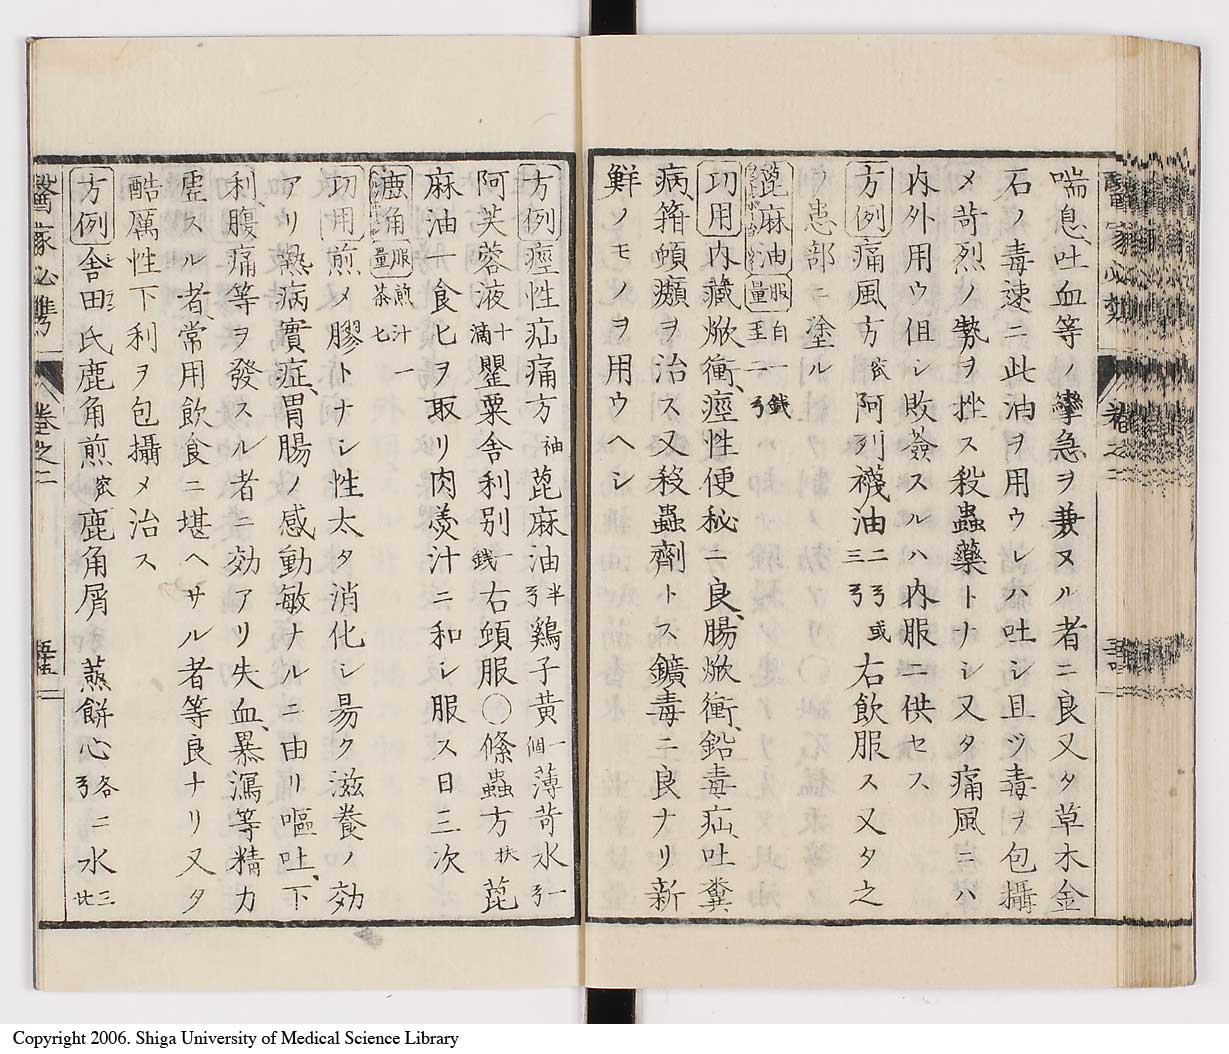 喘息吐血等ノ攣急ヲ兼ヌル者ニ良又タ草木金
石ノ毒速ニ此油ヲ用ウレハ吐シ且ツ毒ヲ包攝
メ苛烈ノ勢ヲ挫ス殺蟲藥トナシ又タ痛風ニハ
内外用ウ但シ敗薟スルハ内服ニ供セス
方例 痛風方 宻 阿列襪油 二弓 或 三弓 右飲服ス又タ之
ヲ患部ニ塗ル
蓖麻油 服量 自一銭 至一弓
功用 内藏焮衝、痙性便秘ニ良、腸焮衝、鉛毒疝、吐糞
病、箱頓癩ヲ治ス又殺蟲劑トス鑛毒ニ良ナリ新
鮮ノモノヲ用ウヘシ
方例 痙性疝痛方 袖 蓖麻油 半弓 鷄子黄 一個 薄苛水 一弓
阿芙蓉液 十滴 罌粟舎利別 一銭 右頓服〇條蟲方 扶 蓖
麻油一食匕ヲ取リ肉羹汁ニ和シ服ス日三次
鹿角 服量 煎汁一茶七
功用 煎メ膠トナシ性太タ消化シ昜ク滋養ノ効
アリ熱病實症、胃腸ノ感動敏ナルニ由リ嘔吐、下
利、腹痛等ヲ發スル者ニ効アリ失血、暴瀉等精力
虚スル者、常用飲食ニ堪ヘサル者等良ナリ又タ
酷厲性下利ヲ包攝メ治ス
方例 舎田氏鹿角煎 宻 鹿角屑 蒸餅心 各二弓 水 三廿
醫家必携 巻之二